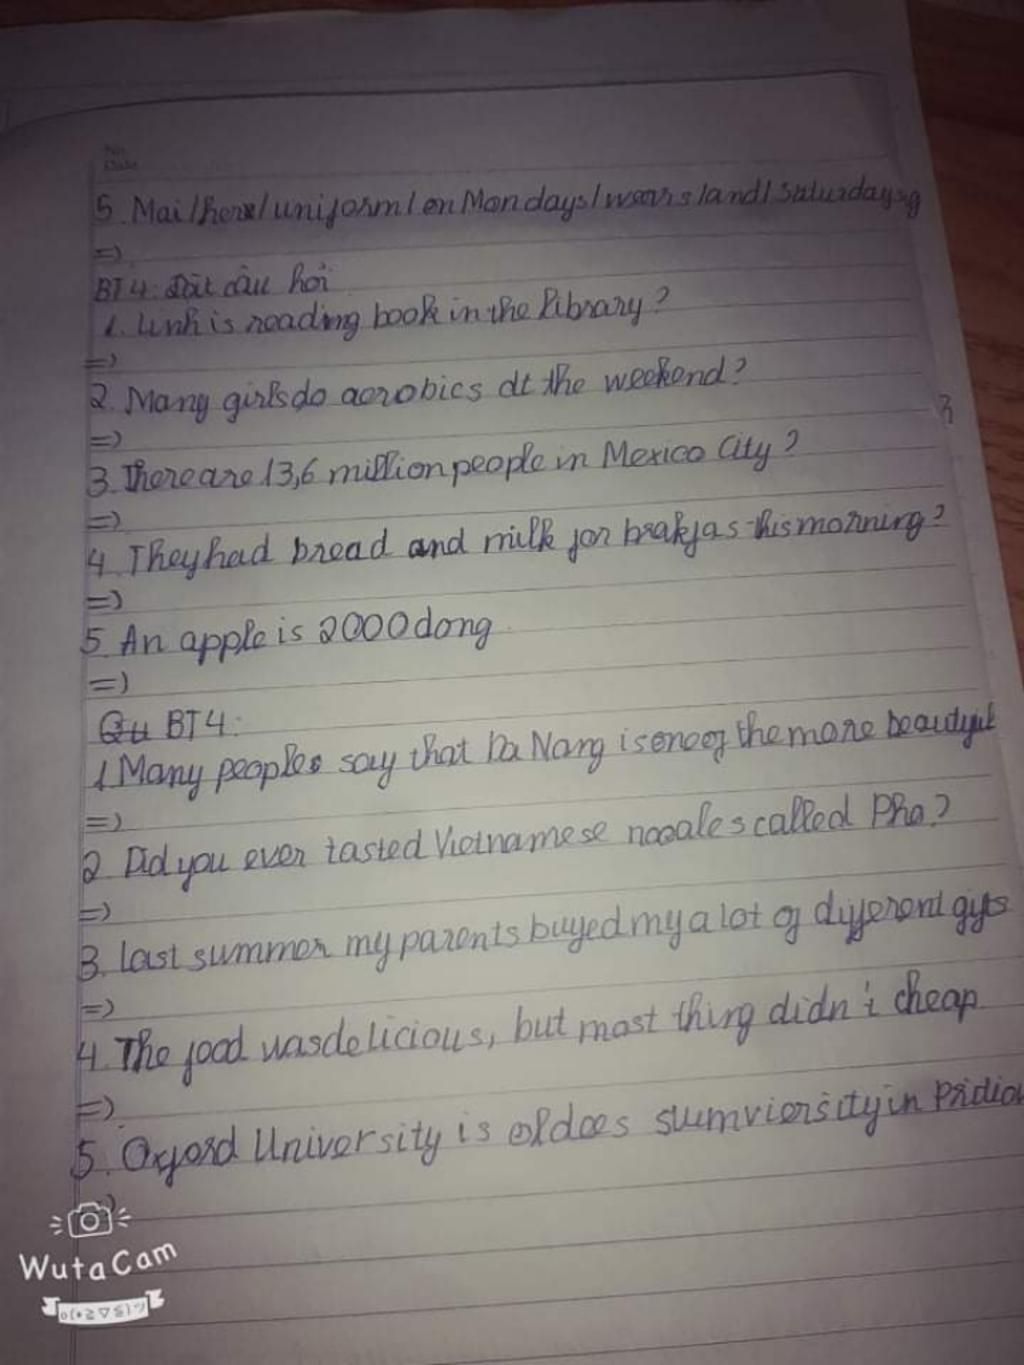 No.
Date
5. Mai/here/uniform/on Mondays/wears/and/saturdays
=)
BT4: Đặt câu hỏi
1. Linh is reading book in the library?
=)
2. Many girls do aerobics at the weekend?
=)
3. There are 13,6 million people in Mexico City?
=)
4. They had bread and milk for brakfas this morning?
=)
5 An apple is 2000 dong
=)
BT4:
1 Many people say that Da Nang is one of the more beautyful
=)
2 Did you ever tasted Vietnamese called Pho?
=)
3. last summer my parents buyed my a lot of different gifts
=)
4. The food was delicious, but most thing didn't cheap
=)
5. Oxford University is oldoes in
WutaCam